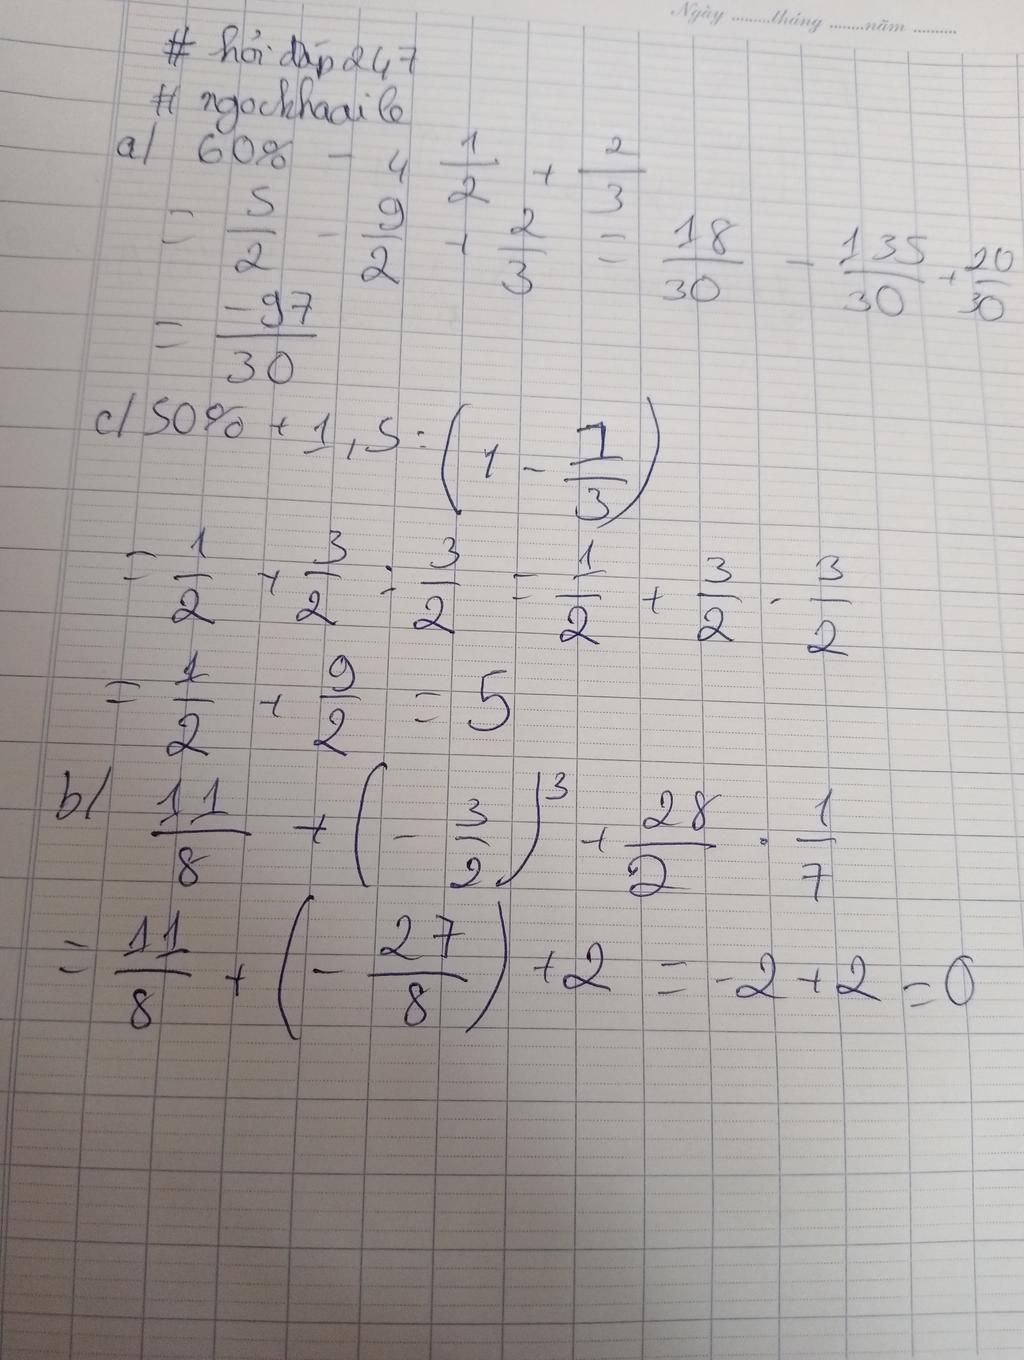 Ngày ..........tháng ........năm ...........
# hỏi đáp 247
# ngockhaai6
a/ 60% - 4 1/2 + 2/3
= 5/2 - 9/2 + 2/3 = 18/30 - 135/30 + 20/30
= -97/30
c/ 50% + 1,5 : (1 - 1/3)
= 1/2 + 3/2 : 3/2 = 1/2 + 3/2 . 3/2
= 1/2 + 9/2 = 5
b/ 11/8 + (- 3/2)³ + 28/2 . 1/7
= 11/8 + (- 27/8) + 2 = -2 + 2 = 0